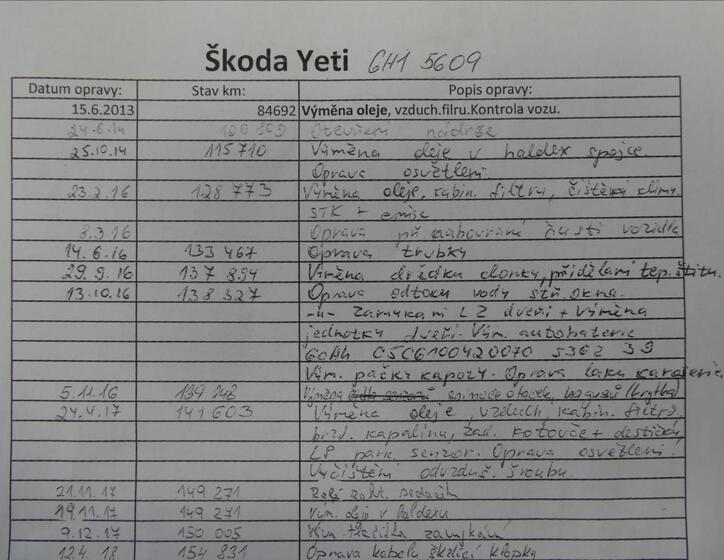 Škoda Yeti 6H1 5609
Datum opravy: Stav km: Popis opravy:
15.6.2013 84692 Výměna oleje, vzduch.filru.Kontrola vozu.
24.6.14 Otevření nádrže
25.10.14 115710 Výměna oleje v haldex spojce.
Oprava osvětlení.
23.2.16 128 773 Výměna oleje, kabin. filtru, čištění klimy.
STK + emise
8.3.16 Oprava při nabourané části vozidla
14.6.16 133 467 Oprava trubky
29.9.16 137 894 Výměna držáku clonky, přidělaní tep. štítu.
13.10.16 138 327 Oprava odtoku vody stř. okna.
-u- Zamykaní LZ dveří + Výměna
jednotky dveří. Vým. autobaterie
60Ah 5362 39
Vým. páčky kapoty. Oprava laku karoserie
5.11.16 139 248 Výměna snímače otáček,
24.4.17 141 603 Výměna oleje, vzduch, kabin. filtrů
brzd. kapalinu, zad. kotouče + destičky,
LP park. senzor. Oprava osvětlení.
Vyčištění odvzduš. šroubu.
21.11.17 149 271
19.11.17 149 271 Vým. olej v haldexu
9.12.17 150 005 Vým. tlačítka zamykání
12.4.18 154 831 Oprava kabelu škrtící klapky